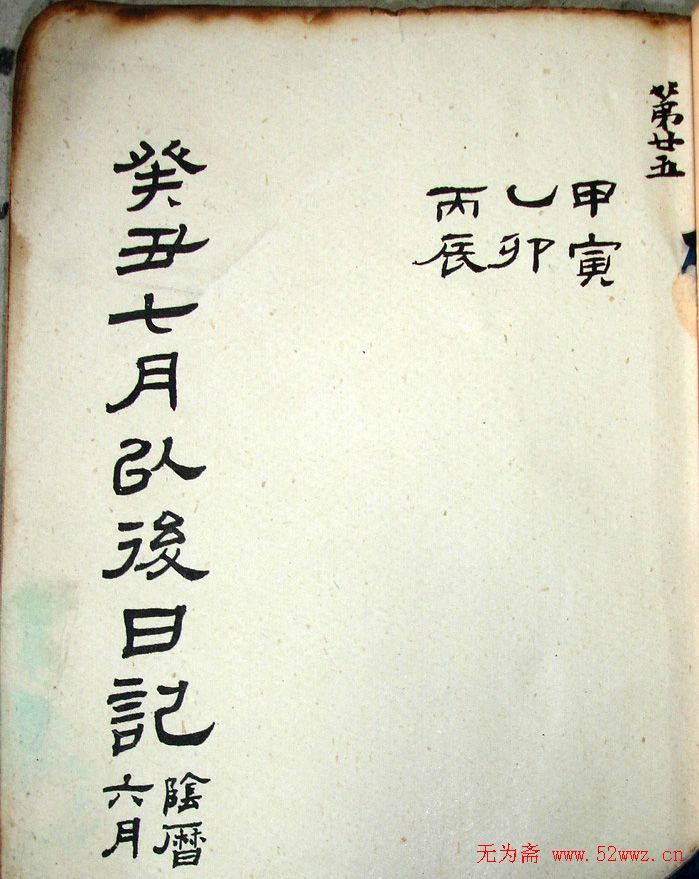 第廿五
甲寅
乙卯
丙辰
癸丑七月㕥後日記
陰曆
六月
无为斋 www.52wwz.cn